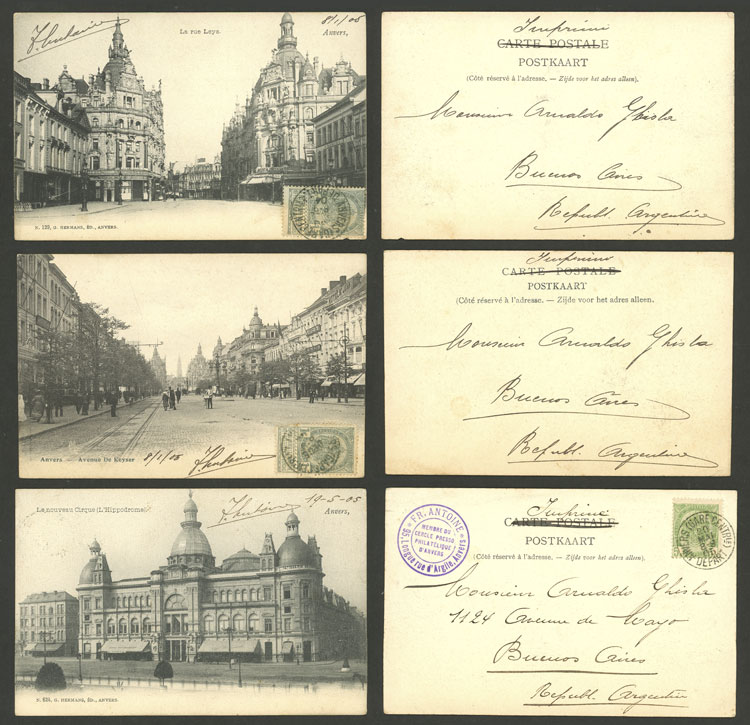 8/1/05
La rue Leys.
Anvers,
N. 129, G. HERMANS, ÉD., ANVERS.
Imprimé
CARTE POSTALE
POSTKAART
(Côté réservé à l'adresse. — Zijde voor het adres alleen).
Monsieur Arnaldo Ghisla
Buenos Aires
Republ. Argentine
Anvers — Avenue De Keyser
8/1/05
Imprimé
CARTE POSTALE
POSTKAART
(Côté réservé à l'adresse. — Zijde voor het adres alleen.
Monsieur Arnaldo Ghisla
Buenos Aires
Republ. Argentine
Le nouveau Cirque (L'Hippodrome)
19-5-05
Anvers,
G. HERMANS, ÉD., ANVERS.
FR. ANTOINE
MEMBRE DU
CERCLE PRESSO
PHILATÉLIQUE
D'ANVERS
95, Longue rue d'Argile, Anvers
Imprimé
CARTE POSTALE
POSTKAART
(Côté réservé à l'adresse. — Zijde voor het adres alleen).
Monsieur Arnaldo Ghisla
1124 Avenue de Mayo
Buenos Aires
Republ. Argentine